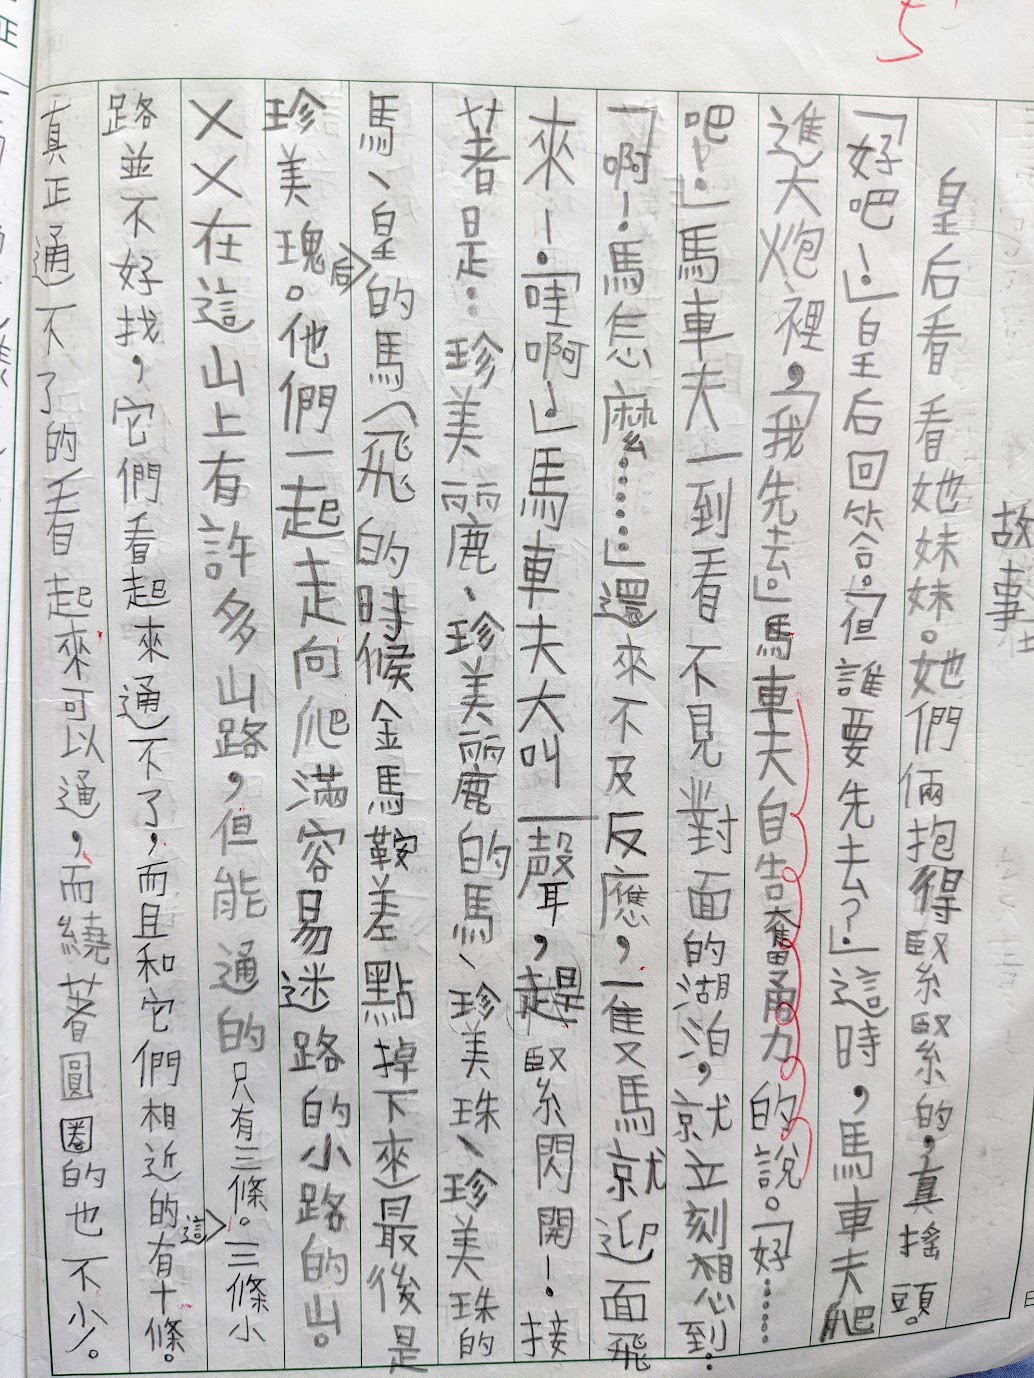 5
故事
皇后看看她妹妹。她們倆抱得緊緊的,真搖頭。
「好吧!」皇后回答。「但誰要先去?」這時,馬車夫爬
進大炮裡,「我先去」馬車夫自告奮勇力的說。「好……
吧!」馬車夫一到看不見對面的湖泊,就立刻想到:
「啊!馬怎麼……」還來不及反應,一隻馬就迎面飛
來!「哇啊!」馬車夫大叫一聲,趕緊閃開!接
著是:珍美麗、珍美麗的馬、珍美珠、珍美珠的
馬、皇后的馬(飛的時候金馬鞍差點掉下來)最後是
珍美瑰。他們一起走向爬滿容易迷路的小路的山。
ㄨㄨ在這山上有許多山路,但能通的只有三條。這三條小
路並不好找,它們看起來通不了,而且和它們相近的有十條。
真正通不了的看起來可以通,而繞著圓圈的也不少。